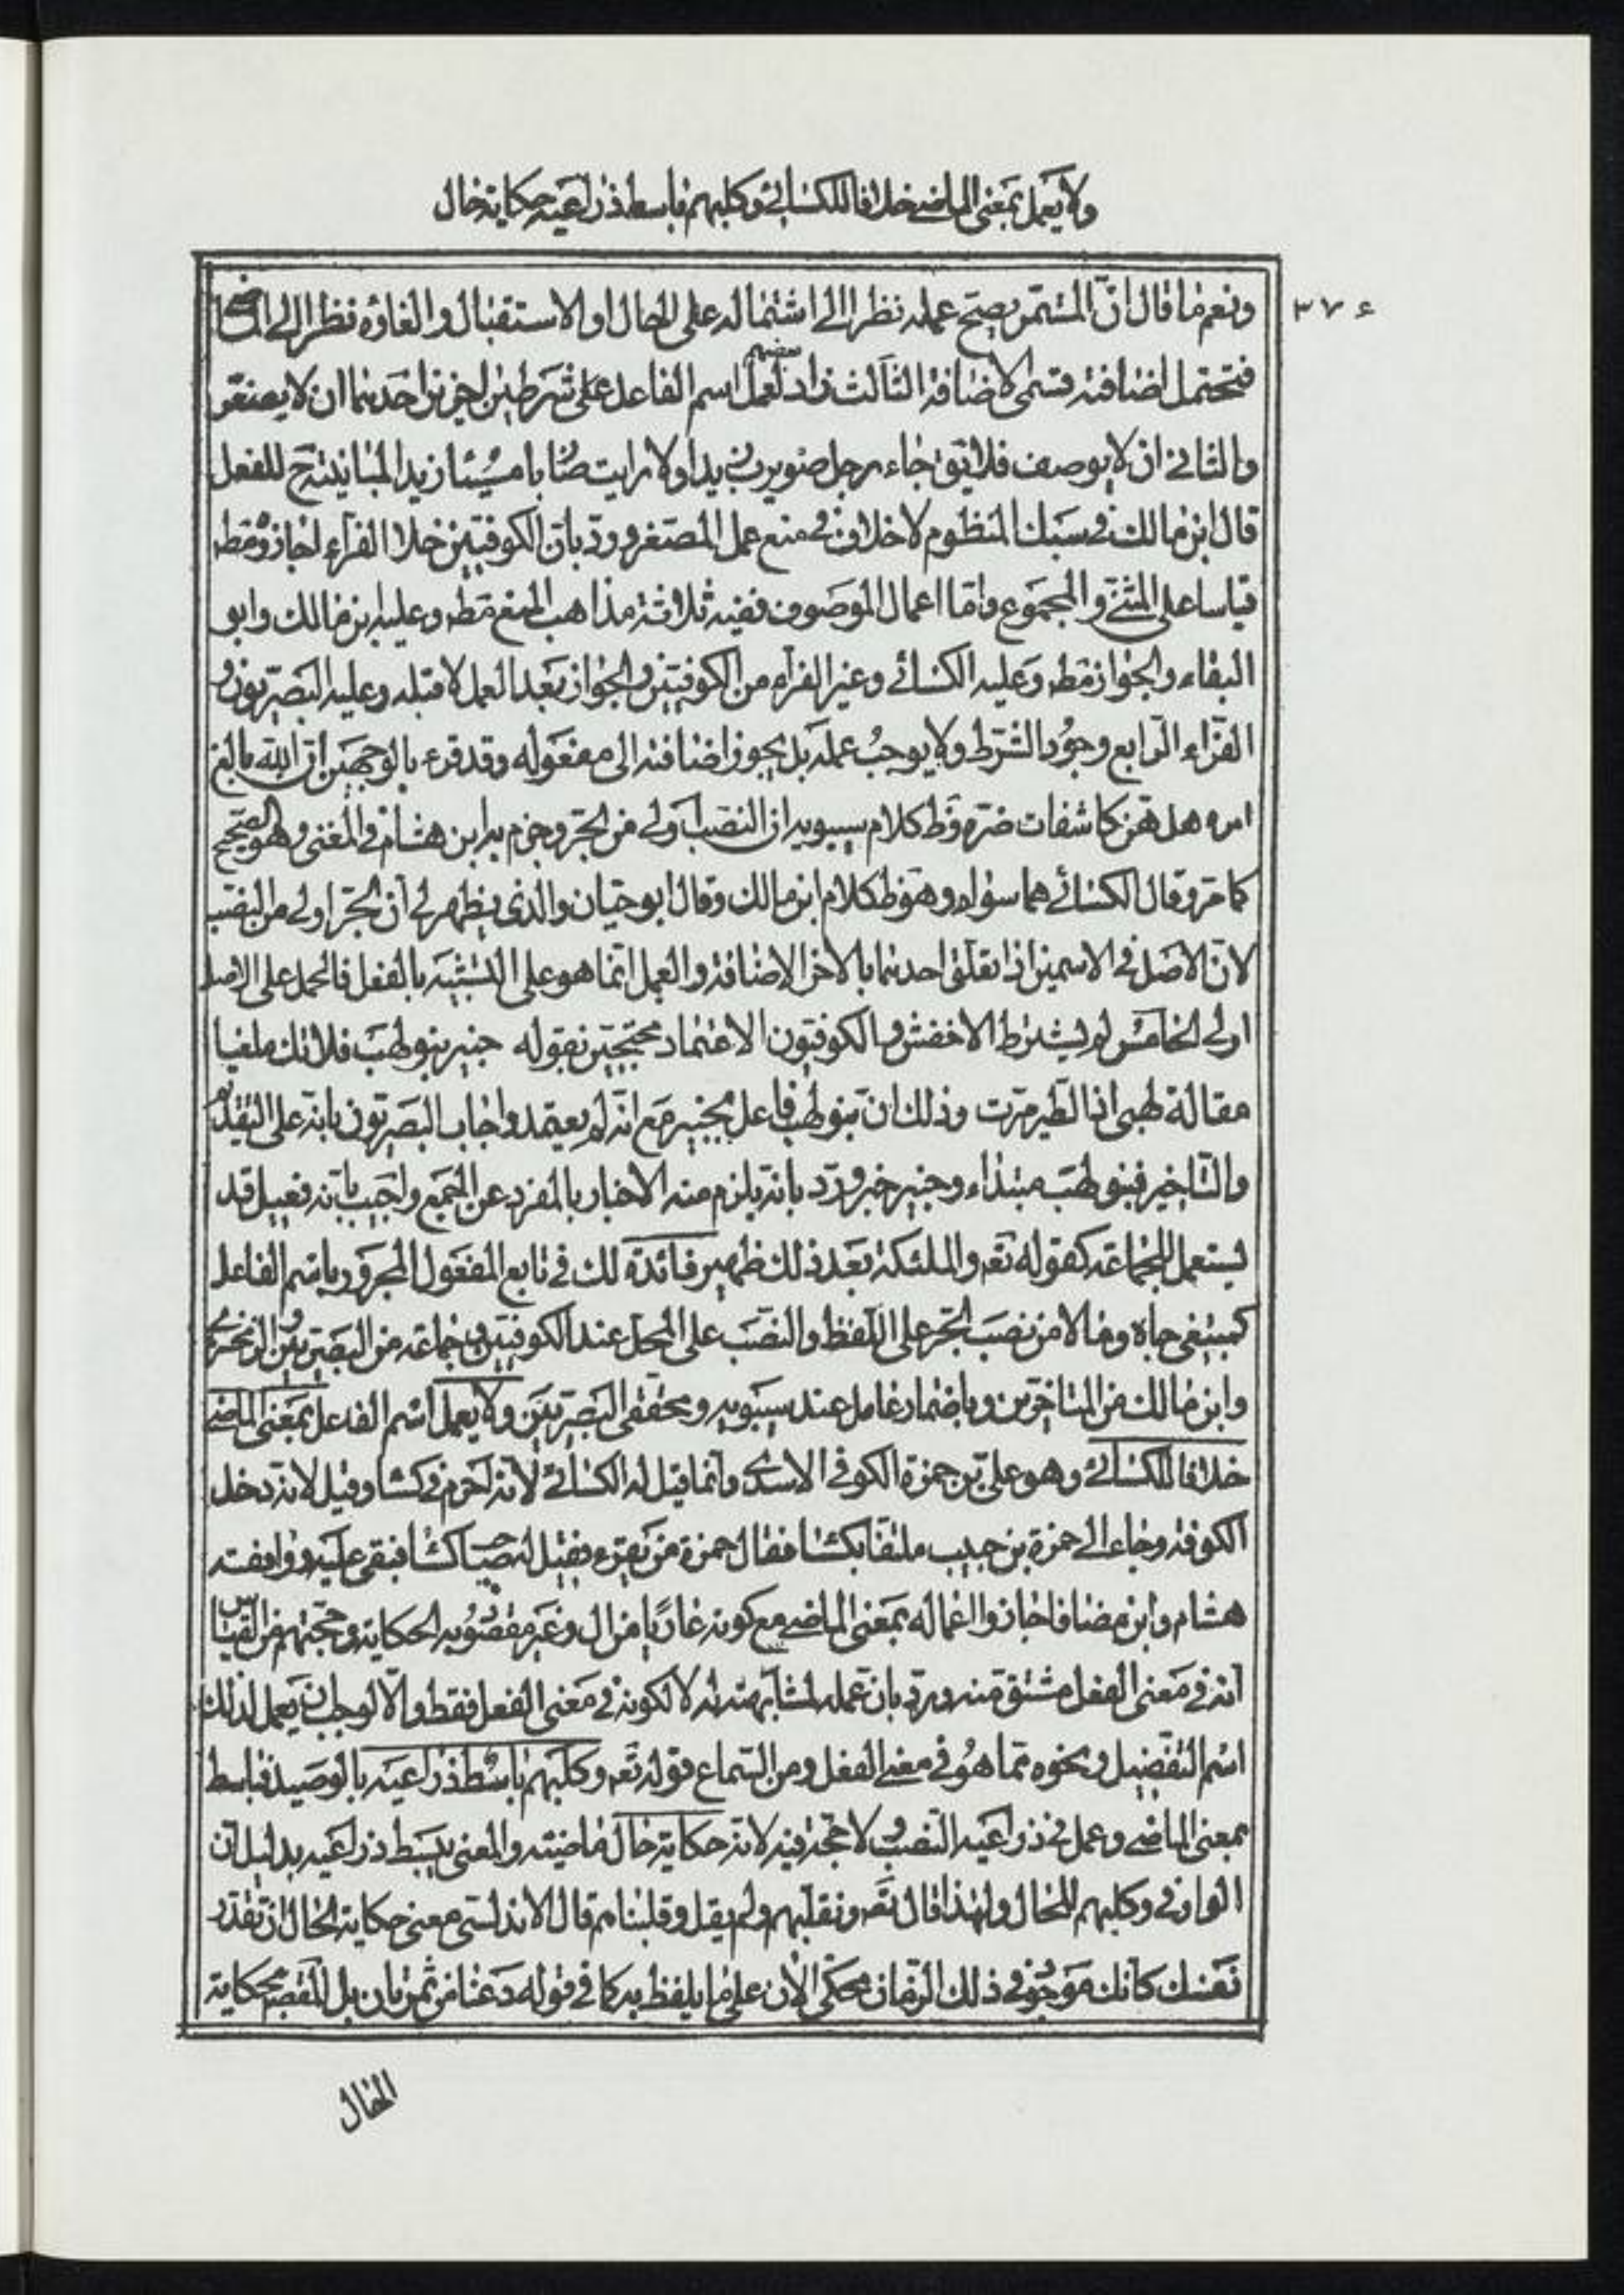 ولا يعمل بمعنى الماضي خلافا للكسائي وكلبهم باسط ذراعيه حكاية حال
٣٧٤
ونعم ما قال انّ المستمر يصحّ عمله نظرا الى اشتماله على الحال او الاستقبال والغاؤه نظرا الى الماضي
فتحتمل اضافته قسمى الاضافة الثالث زاد بعضهم لعمل اسم الفاعل على شرطين اخرين احدهما ان لا يصغّر
والثاني ان لا يوصف فلا يق جاء رجل ضويرب زيدا ولا رايت ضاربا مسيئا زيدا لمباينته ح للفعل
قال ابن مالك في سبك المنظوم لا خلاف في منع عمل المصغر وردّ بان الكوفيّين خلا الفرّاء اجازوه مط
قياسا على المثنّى والمجموع وامّا اعمال الموصوف ففيه ثلاثة مذاهب المنع مط وعليه ابن مالك وابو
البقاء والجواز مط وعليه الكسائي وغير الفرّاء من الكوفيّين والجواز بعد العمل لا قبله وعليه البصريّون و
الفرّاء الرّابع وجود الشّرط ولا يوجب عمله بل يجوز اضافته الى مفعوله وقد قرء بالوجهين انّ الله بالغ
امره هل هنّ كاشفات ضرّه وظ كلام سيبويه ان النصب اولى من الجرّ وجزم به ابن هشام في المغنى وهو الصّحيح
كما مرّ وقال الكسائي هما سواء وهو ظ كلام ابن مالك وقال ابو حيّان والّذي يظهر لي انّ الجرّ اولى من النصب
لانّ الاصل في الاسمين اذا تعلّق احدهما بالاخر الاضافة والعمل انّما هو على التشبيه بالفعل فالحمل على الاصل
اولى الخامس لم يشترط الاخفش والكوفيّون الاعتماد محتجّين بقوله خبير بنو لهب فلا تك ملغيا
مقالة لهبي اذا الطير مرّت وذلك انّ بنو لهب فاعل بخبير مع انّه لم يعتمد واجاب البصريّون بانّه على التقديم
والتّاخير فبنو لهب مبتداء وخبير خبر وردّ بانّه يلزم منه الاخبار بالمفرد عن الجمع واجيب بانّه فعيل قد
يستعمل للجماعة كقوله تعم والملئكة بعد ذلك ظهير فائدة لك في تابع المفعول المجرور باسم الفاعل
كمبتغى جاه ومالا من نصب الجرّ على اللّفظ والنّصب على المحل عند الكوفيّين وجماعة من البصريّين والزمخشري
وابن مالك من المتاخّرين وباضمار عامل عند سيبويه ومحقّقى البصريّين ولا يعمل اسم الفاعل بمعنى الماضي
خلافا للكسائي وهو علىّ بن حمزة الكوفي الاسدي وانّما قيل له الكسائي لانّه احرم في كسا وقيل لانّه دخل
الكوفة وجاء الى حمزة بن حبيب ملتفّا بكسا فقال حمزة من يقرء فقيل له صاحب الكسا فبقى عليه ووافقه
هشام وابن مضا فاجازوا اعماله بمعنى الماضي مع كونه عاريا من ال وغير مقصود به الحكاية وحجّتهم من القياس
انّه في معنى الفعل مشتق منه وردّ بان عمله لمشابهته له لا لكونه في معنى الفعل فقط والّا لوجب ان يعمل لذلك
اسم التفضيل ونحوه ممّا هو في معنى الفعل ومن السّماع قوله تعم وكلبهم باسط ذراعيه بالوصيد فباسط
بمعنى الماضي وعمل في ذراعيه النّصب ولا حجّة فيه لانّه حكاية حال ماضية والمعنى يبسط ذراعيه بدليل ان
الواو في وكلبهم للحال ولهذا قال تعم ونقلّبهم ولم يقل وقلّبناهم قال الاندلسي معنى حكاية الحال ان تقدّر
نفسك كانك موجود في ذلك الزّمان محكى الان على ما يلفظ به كما في قوله دعنا من تمرتان بل المقصود بحكاية
الحال